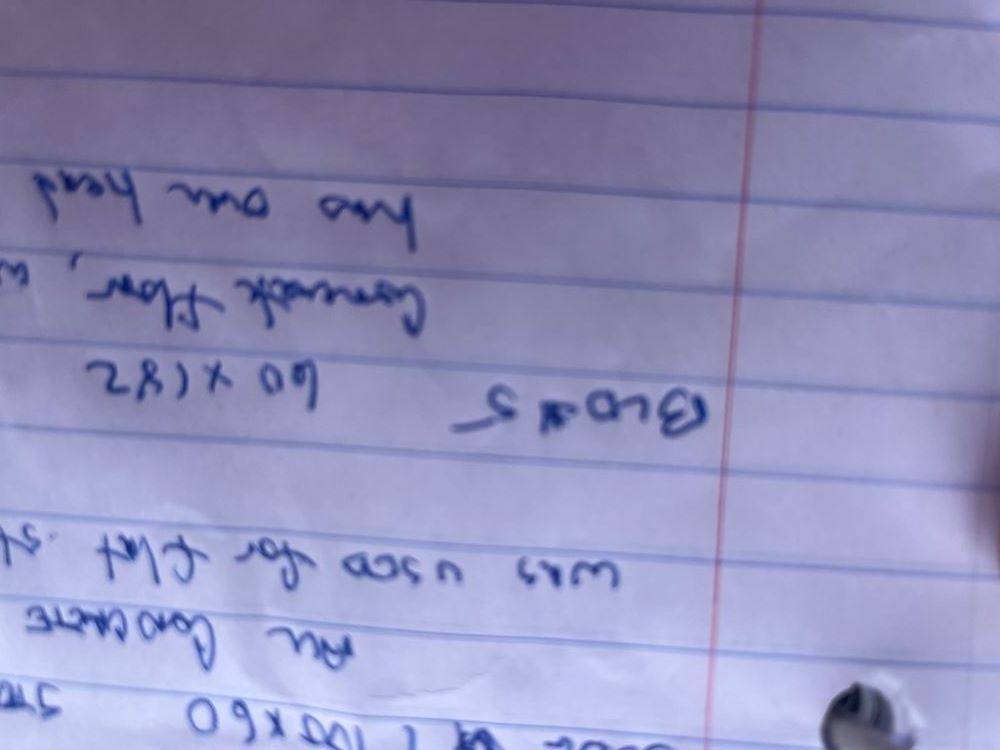 100 x 60
All CONCRETE
WAS USED for flat st
BLD # 5 60 x 182
Concrete floor,
has over head